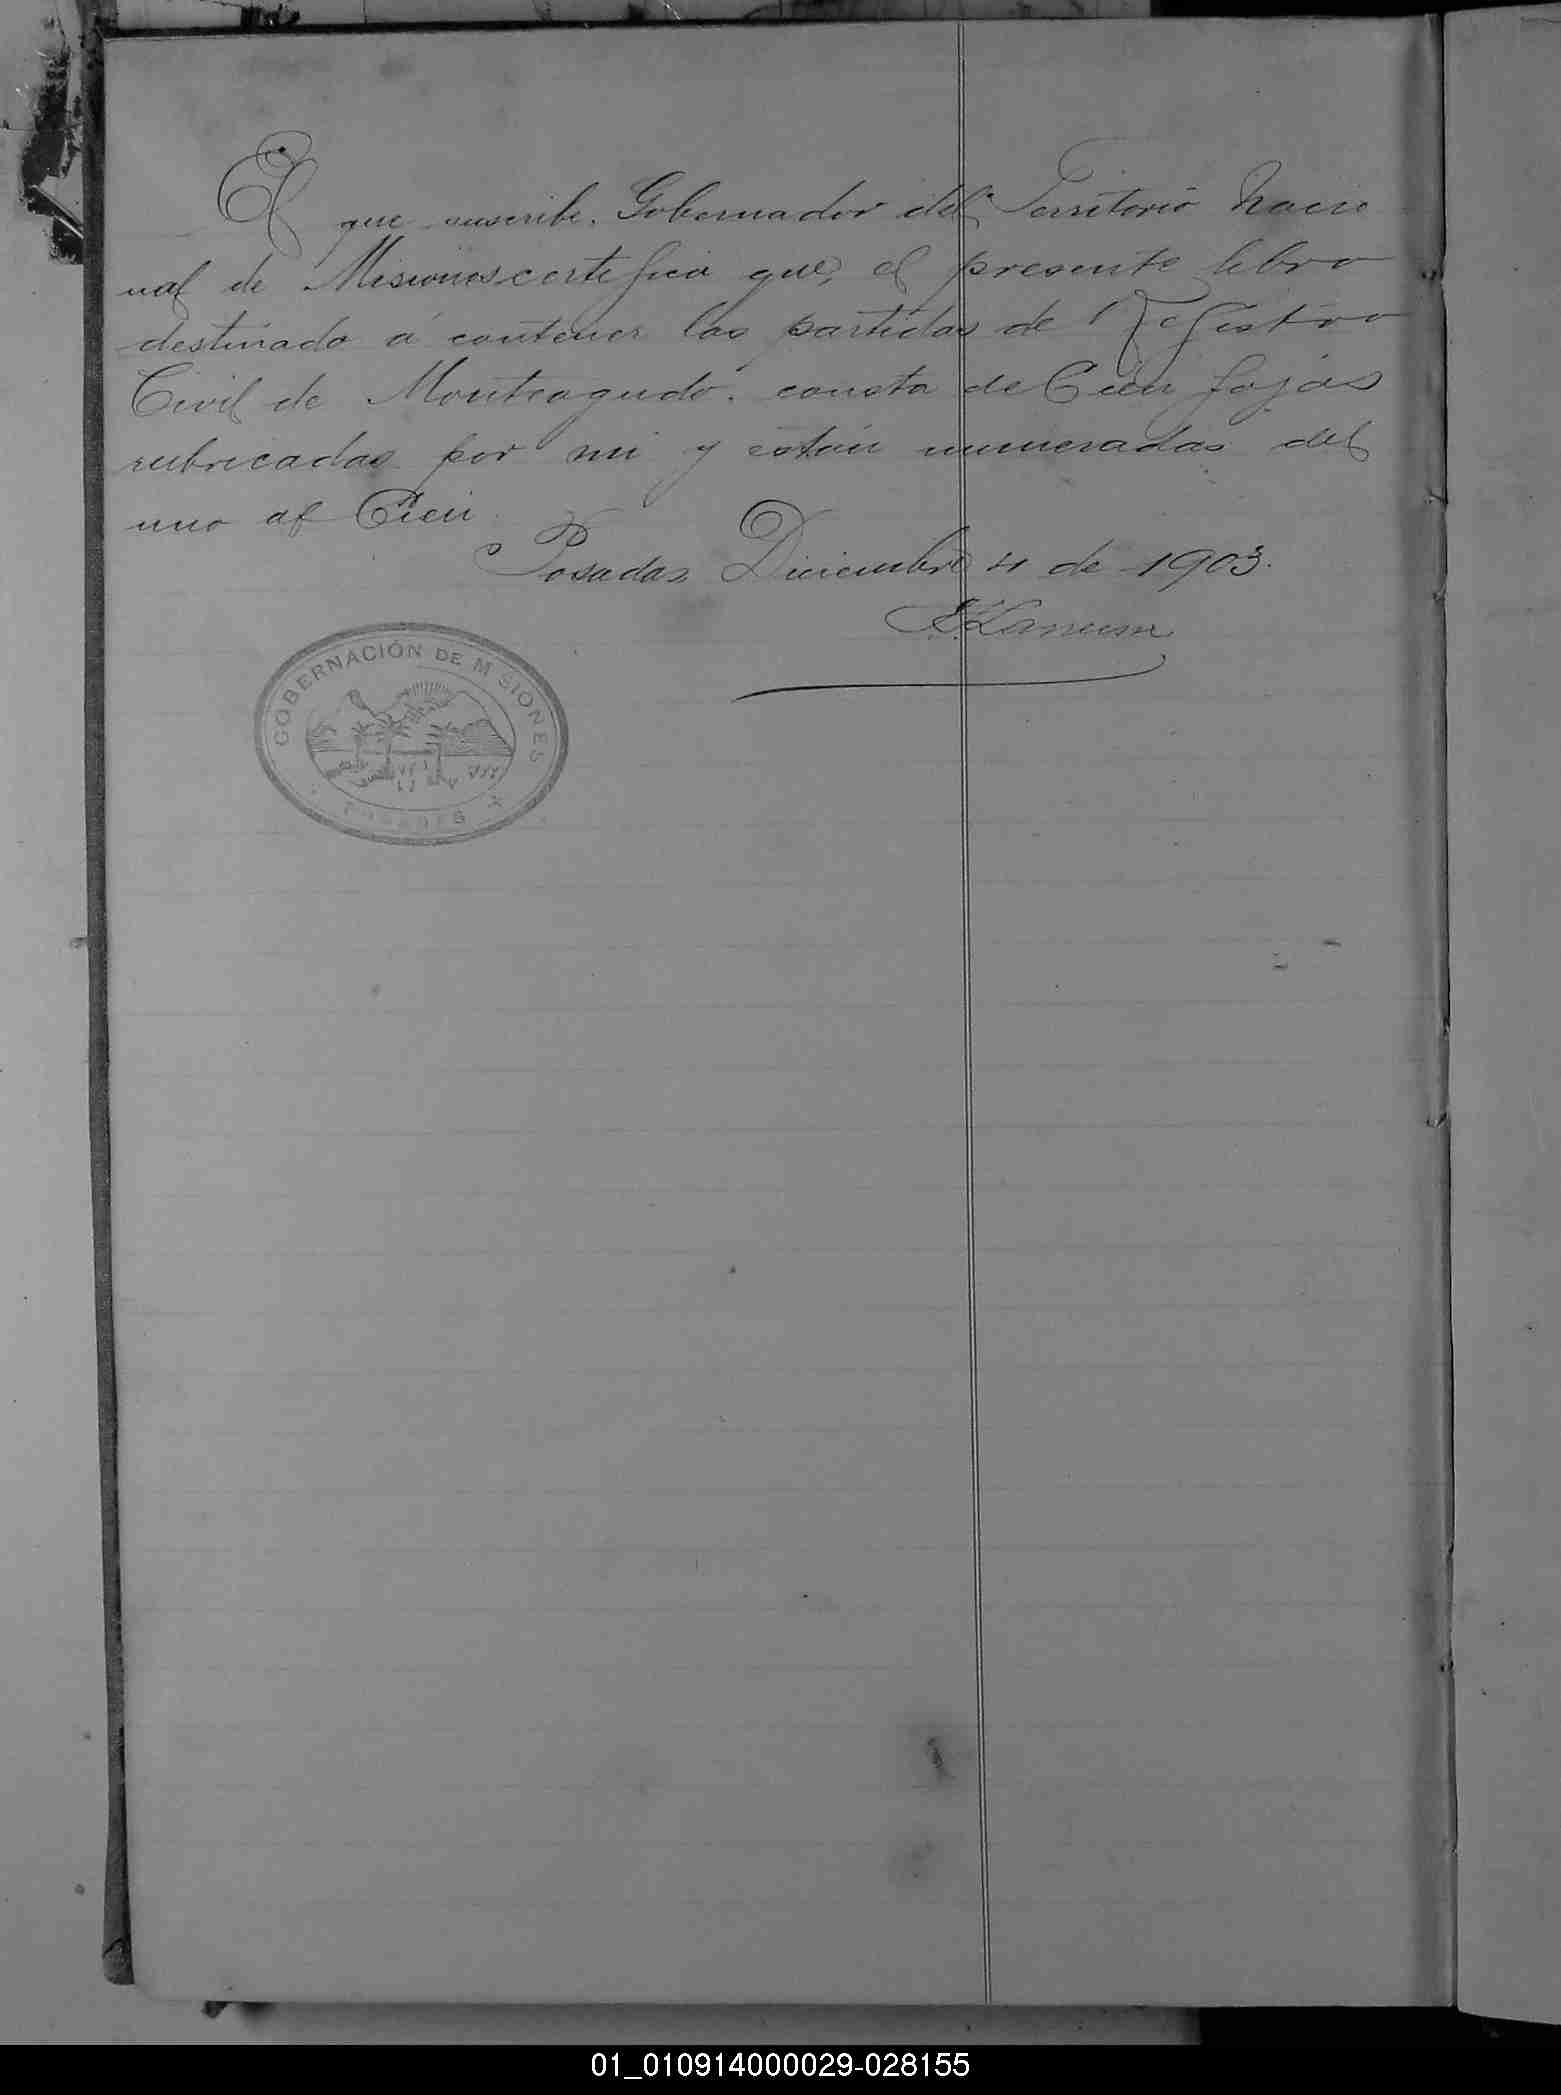 El que suscribe, Gobernador del Territorio Nacio
nal de Misiones certifica que, el presente libro
destinado á contener las partidas de Registro
Civil de Monteagudo, consta de Cien fojas
rubricadas por mi y están numeradas del
uno al Cien
Posadas, Diciembre 4 de 1903.
GOBERNACIÓN DE MISIONES
POSADAS
01_010914000029-028155